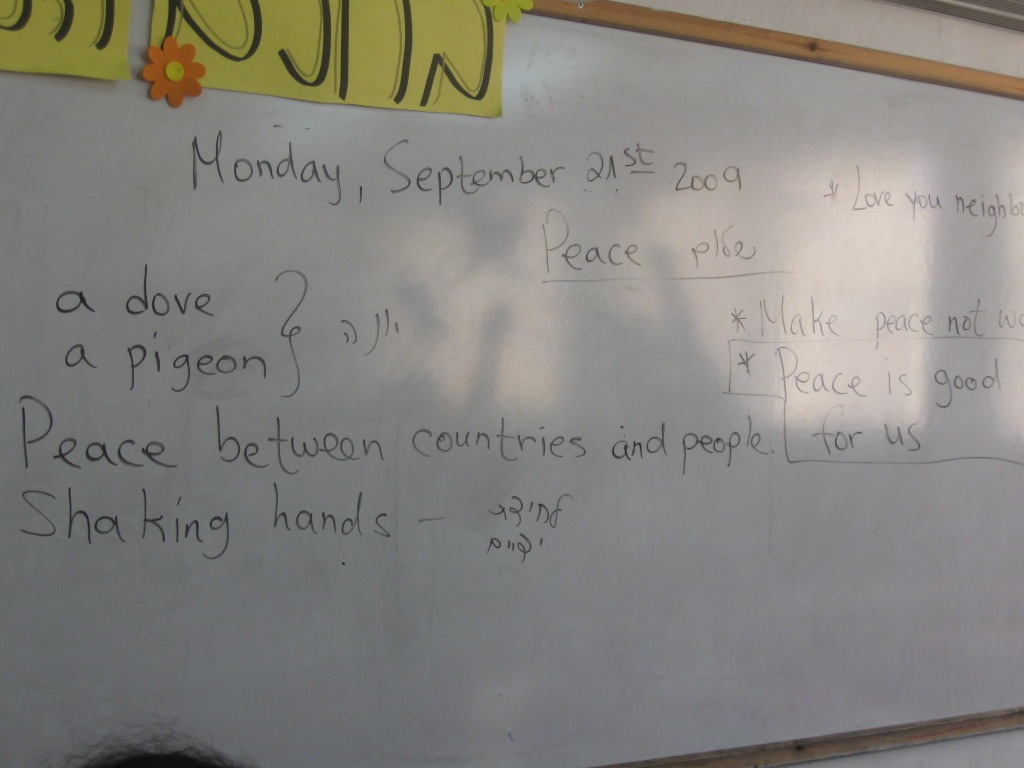 Monday, September 21st 2009
* Love you neighbo
Peace שלום
a dove
a pigeon } יונה
* Make peace not wa
* Peace is good
for us
Peace between countries and people.
Shaking hands - לחיצת
ידיים